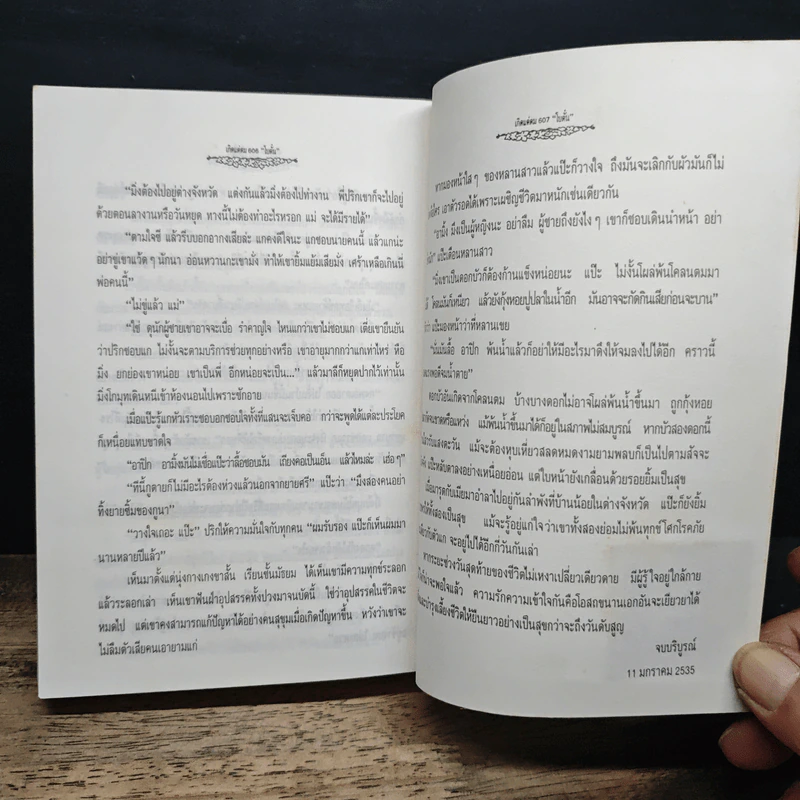 เกิดแต่ตม 606 "โบตั๋น"
"มึงต้องไปอยู่ต่างจังหวัด แต่งกันแล้วมึงต้องไปทำงาน พี่ปริกเขาก็จะไปอยู่
ด้วยตอนลางานหรือวันหยุด ทางนี้ไม่ต้องทำอะไรหรอก แม่ จะได้มีรายได้"
"ตามใจซี แล้วรีบบอกอากงเสียล่ะ แกคงดีใจนะ แกชอบนายคนนี้ แล้วแกน่ะ
อย่าขู่เขาแว้ดๆ นักนา อ่อนหวานกะเขามั่ง ทำให้เขายิ้มแย้มเสียมั่ง เศร้าเหลือเกินนี่
พ่อคนนี้"
"ไม่ขู่แล้ว แม่"
"ใช่ ดุนักผู้ชายเขาอาจจะเบื่อ รำคาญใจ ไหนแกว่าเขาไม่ชอบแก เดี๋ยเขายืนยัน
ว่าปริกชอบแก ไม่งั้นจะตามบริการช่วยทุกอย่างหรือ เขาอายุมากกว่าแกเท่าไหร่ หือ
มึ่ง ยกย่องเขาหน่อย เขาเป็นพี่ อีกหน่อยจะเป็น..." แล้วมาลีก็หยุดปากไว้เท่านั้น
มึ่งโกมุทเดินหนีเข้าห้องนอนไปเพราะชักอาย
เมื่อแป๊ะรู้แกหัวเราะชอบอกชอบใจทั้งที่แสนจะเจ็บคอ กว่าจะพูดได้แต่ละประโยค
ก็เหนื่อยแทบขาดใจ
"อาปิก อามึ้งมันไม่เชื่อแป๊ะว่าลื้อชอบมัน เถียงคอเป็นเอ็น แล้วไหมล่ะ เฮ่อๆ"
"ทีนี้กูตายก็ไม่มีอะไรต้องห่วงแล้วนอกจากยายศรี" แป๊ะว่า "มึงสองคนอย่า
ทิ้งยายซิ้มของกูนา"
"วางใจเถอะ แป๊ะ" ปริกให้ความมั่นใจกับทุกคน "ผมรับรอง แป๊ะก็เห็นผมมา
นานหลายปีแล้ว"
เห็นมาตั้งแต่นุ่งกางเกงขาสั้น เรียนชั้นมัธยม ได้เห็นเขามีความทุกข์ระลอก
แล้วระลอกเล่า เห็นเขาพ้นฝ่าอุปสรรคทั้งปวงมาจนบัดนี้ ใช่ว่าอุปสรรคในชีวิตจะ
หมดไป แต่เขาคงสามารถแก้ปัญหาได้อย่างคนสุขุมเมื่อเกิดปัญหาขึ้น หวังว่าเขาจะ
ไม่ลืมตัวเสียคนเอายามแก่
เกิดแต่ตม 607 "โบตั๋น"
หากมองหน้าใสๆ ของหลานสาวแล้วแป๊ะก็วางใจ ถึงมันจะเลิกกับผัวมันก็ไม่
เอาตัวรอดได้เพราะเผชิญชีวิตมาหนักเช่นเดียวกัน
"อามึ้ง มึงเป็นผู้หญิงนะ อย่าลืม ผู้ชายถึงยังไงๆ เขาก็ชอบเดินนำหน้า อย่า
แป๊ะเตือนหลานสาว
"มึงเขาเป็นดอกบัวก็ต้องก้านแข็งหน่อยนะ แป๊ะ ไม่งั้นโผล่พ้นโคลนตมมา
โคลนมันก็เหนียว แล้วยังกุ้งหอยปูปลาในน้ำอีก มันอาจจะกัดกินเสียก่อนจะบาน"
แป๊ะมองหน้าว่าที่หลานเขย
อาปิก พ้นน้ำแล้วก็อย่าให้มีอะไรมาดึงให้จมลงไปได้อีก คราวนี้
ดอกบัวอันเกิดจากโคลนตม บ้างบางดอกไม่อาจโผล่พ้นน้ำขึ้นมา ถูกกุ้งหอย
แม้พ้นน้ำขึ้นมาได้ก็อยู่ในสภาพไม่สมบูรณ์ หากบัวสองดอกนี้
แม้จะต้องหุบเหี่ยวสลดหมดงามยามพลบก็เป็นไปตามสัจจะ
แป๊ะหลับตาลงอย่างเหนื่อยอ่อน แต่ใบหน้ายังเกลื่อนด้วยรอยยิ้มเป็นสุข
เมื่อมารุตกับเมียมาอำลาไปอยู่กันลำพังที่บ้านน้อยในต่างจังหวัด แป๊ะก็ยังยิ้ม
ให้ทั้งสองเป็นสุข แม้จะรู้อยู่แก่ใจว่าเขาทั้งสองย่อมไม่พ้นทุกข์โศกโรคภัย
จะอยู่ไปได้อีกกี่วันกันเล่า
หากระยะช่วงวันสุดท้ายของชีวิตไม่เหงาเปลี่ยวเดียวดาย มีผู้รู้ใจอยู่ใกล้กาย
น่าจะพอใจแล้ว ความรักความเข้าใจกันคือโอสถขนานเอกอันจะเยียวยาได้
บำรุงเลี้ยงชีวิตให้ยืนยาวอย่างเป็นสุขกว่าจะถึงวันดับสูญ
จบบริบูรณ์
11 มกราคม 2535